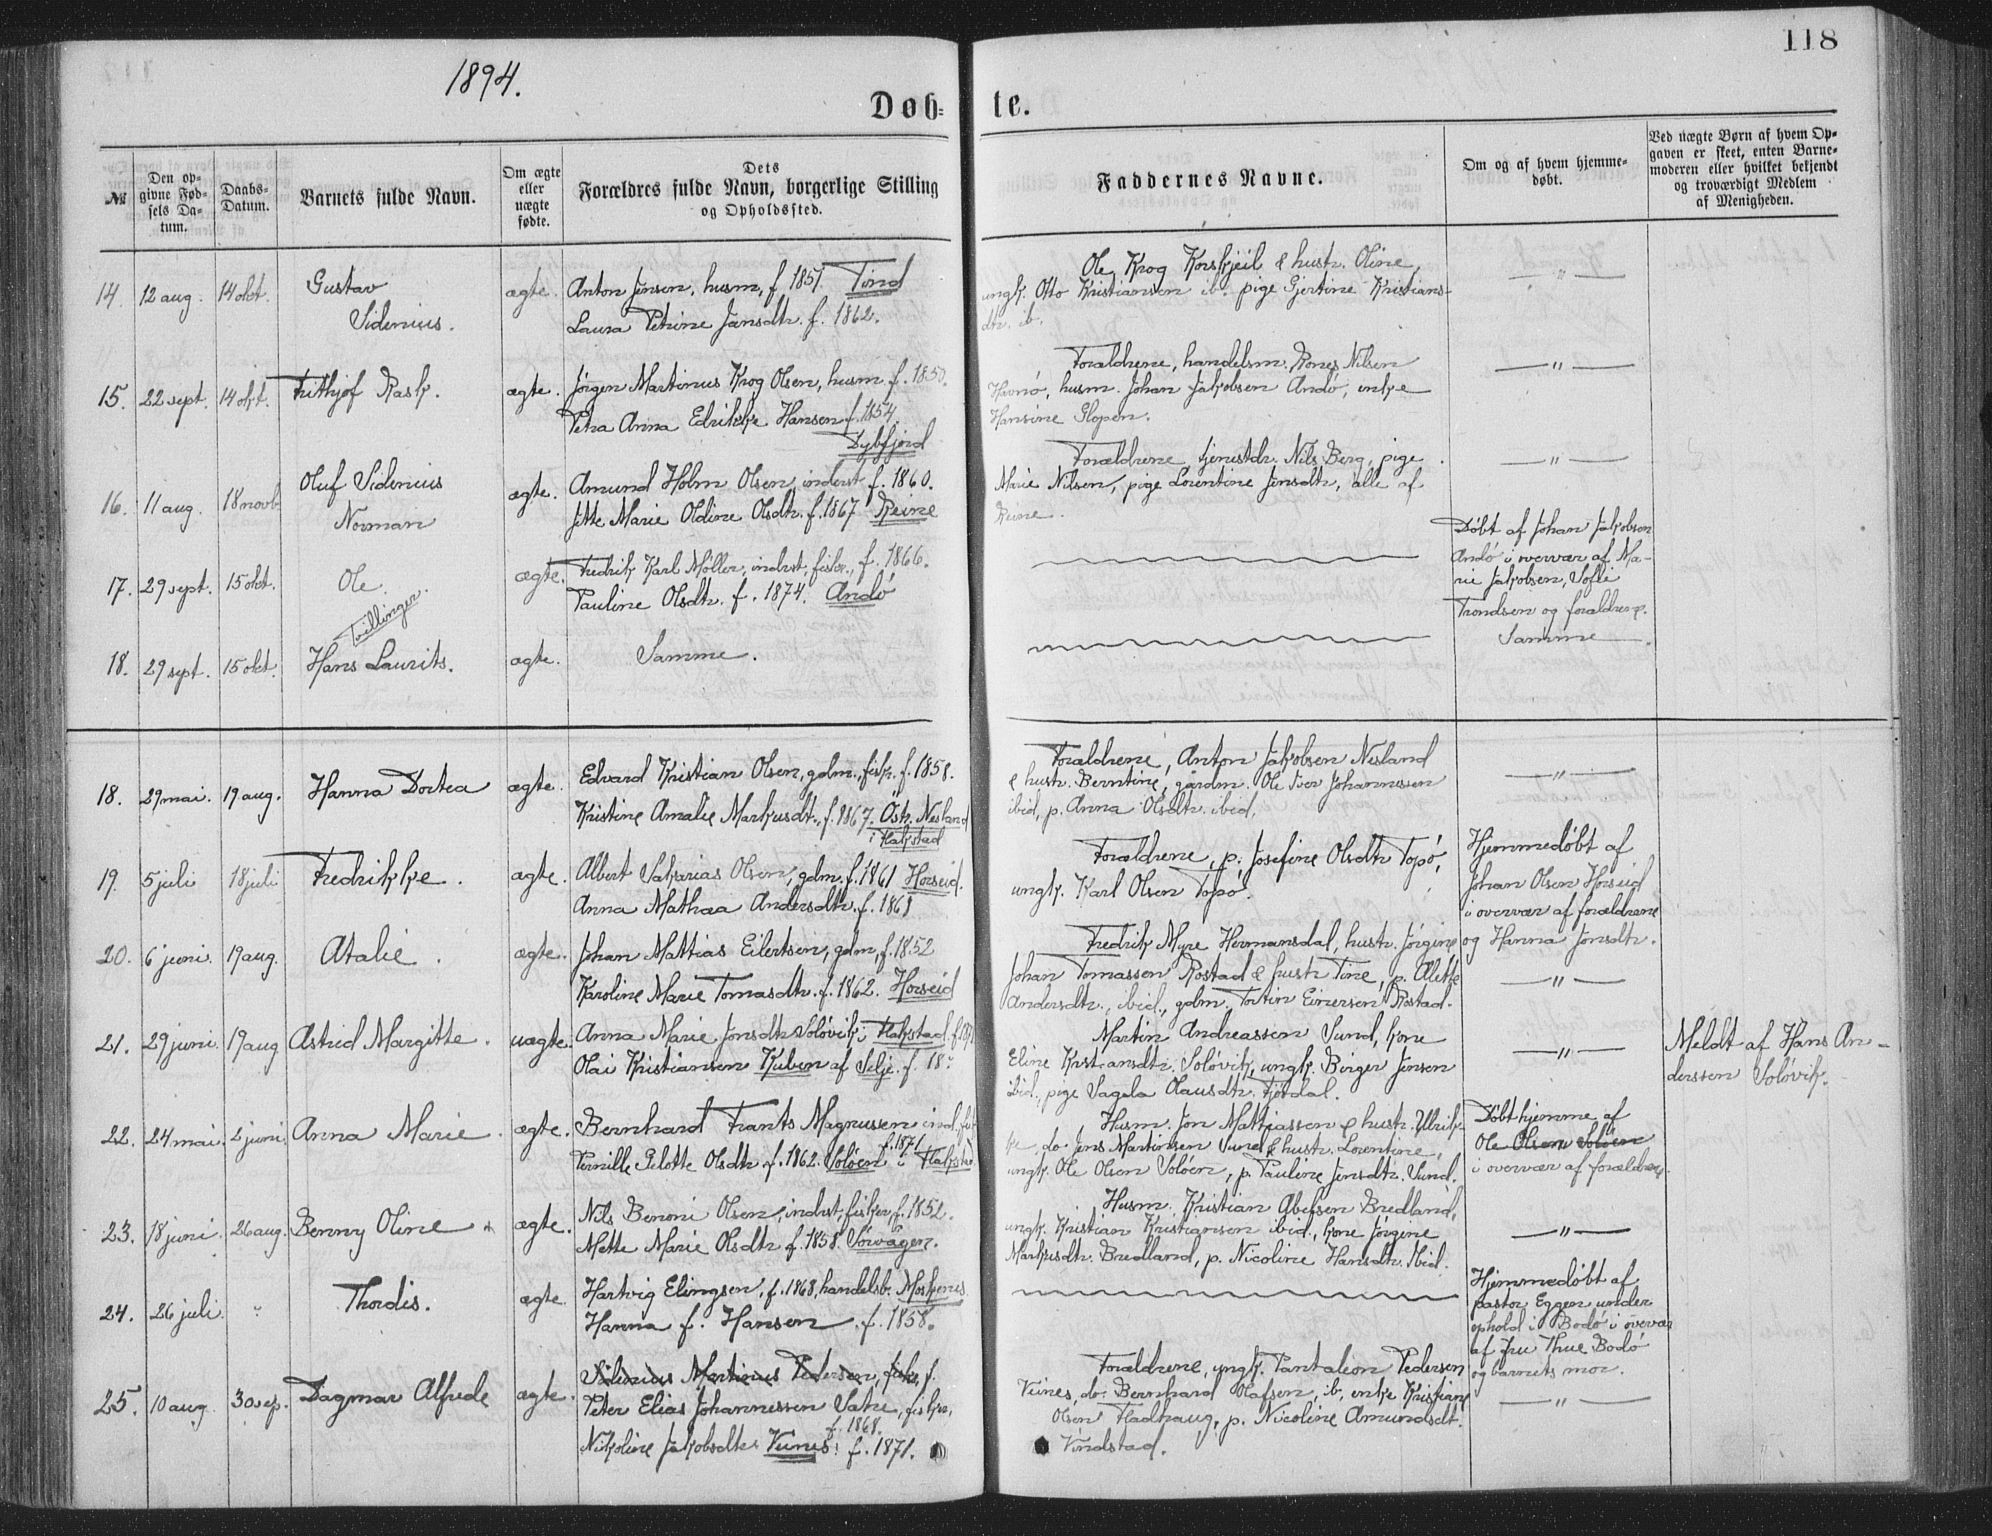 118
1894.
Døb-
te.
№
Den op-
givne Fød-
sels Da-
tum.
Daabs-
Datum.
Barnets fulde Navn.
Om ægte
eller
uægte
fødte.
Dets
Forældres fulde Navn, borgerlige Stilling
og Opholdssted.
Faddernes Navne.
Om og af hvem hjemme-
døbt.
Ved uægte Børn af hvem Op-
gaven er skeet, enten Barne-
moderen eller hvilket bekjendt
og troværdigt Medlem
af Menigheden.
14. 12 aug. 14 okt. Gustav
Sidenius.
ægte. Anton Jensen, husm, f 1851. Tind
Laura Petrine Jansdtr. f. 1862.
Ole Krog Korskjeil & hustr. Oline,
ungk. Otto Kristiansen ib. pige Gjertine Kristians-
dtr. ib.
— " —
15. 22 sept. 14 okt. Frithjof Rask.
ægte. Jörgen Martinus Krog Olsen, husm. f. 1850.
Petra Anna Edrikke Hansen f. 1854.
Dybfjord
Forældrene, handelsm. Rones Nilsen
Havnö, husm. Johan Jakobsen Andö, enke
Hansine Glopen.
— " —
16. 11 aug. 18 novb. Oluf Sidenius
Norman
ægte. Amund Holm Olsen, inderst f. 1860.
Jette Marie Oldine Olsdtr. f. 1867 Reine
Forældrene tjenestdr. Nils Berg, pige
Marie Nilsen, pige Lorentine Jensdtr, alle af
Reine.
— " —
17. 29 sept. 15 okt. Ole.
Tvillinger.
ægte. Fredrik Karl Möller, indrst, fisker, f. 1866.
Pauline Olsdtr. f. 1874. Andö
Döbt af Johan Jakobsen
Andö i overvær af Ma-
rie Jakobsen, Sofie
Trondsen og forældrene.
18. 29 sept. 15 okt. Hans Laurits. ægte. Samme.
Samme
18. 29 mai. 19 aug. Hanna Dortea ægte. Edvard Kristian Olsen, gdm., fisk. f. 1858.
Kristine Amalie Markusdt., f. 1867. Östr. Nesland
i Flakstad
Forældrene, Anton Jakobsen Nesland
& hustr. Berntine, gårdm. Ole Iver Johannessen
ibid, p. Anna Olsdtr. ibid.
— " —
19. 5 juli 18 juli Fredrikke. ægte. Albert Sakarias Olsen, gdm. f. 1861 Horseid.
Anna Mathea Andersdtr. f. 1868
Forældrene, p. Josefine Olsdtr Topö,
ungk. Karl Olsen Topö.
Hjemmedöbt af
Johan Olsen Horseid
i overvær af forældrene
og Hanna Jonsdtr.
20. 6 juni. 19 aug. Atalie. ægte. Johan Mattias Eilertsen, gdm, f. 1852
Karoline Marie Tomasdtr. f. 1862. Horseid
Fredrik Myre Hermansdal, hustr. Jörgine
Johan Tomassen Rostad & hustr Tine, p. Alette
Andersdtr., ibid., gdm. Tortin Einersen Rostad.
— " —
21. 29 juni. 19 aug Astrid Margitte. uægte. Anna Marie Jonsdtr. Solövik i Flakstad
Olai Kristiansen Kuben af Selje. f. 18
Martin Andreassen Sund, kone
Eline Kristiansdtr. Solövik, ungk. Birger Jensen
ibid., pige Vagela Olausdtr. Fjördal.
— " —
Meldt af Hans An-
derssen Solövik.
22. 24 mai. 2 juni. Anna Marie. ægte. Bernhard Frants Magnussen
f. 1871
Pernille Pelotte Olsdtr. f. 1862. Soloen i Flakstad
Husm. Jon Mattiassen & hustr. Ulrik-
ke, do. Jens Martinsen Sund & hustr. Lorentine,
ungk. Ole Olsen Soloen, p. Pauline Jensdtr. Sund.
Döbt hjemme af
Ole Olsen Soloen
i overvær af forældrene.
23. 18 juni. 26 aug. Benny Oline ægte. Nils Benoni Olsen, indrst, fisker, f. 1852.
Mette Marie Olsdtr f. 1858. Sörvågen.
Husm. Kristian Abelsen Bredland,
ungk. Kristian Kristiansen ibid., kone Jörgine
Markusdtr. Bredland, p. Nicoline Hansdtr. Ibid.
— " —
24. 26 juli. " Thordis. ægte. Hartvig Elingsen, f. 1868, handelsb. Moskenes
Hanna f. Hansen f. 1858.
Hjemmedöbt af
pastor Eggen under
ophold i Bodö i overvær
af fru Thue Bodö
og barnets mor.
25. 10 aug 30 sep. Dagmar Alfrede ægte. Sidenius Martinus Pedersen, fisker, f.
Peter Elias Johannessen Satre, fisker,
f. 1868.
Nikoline Jakobsdtr Vines: f. 1871.
Forældrene, ungk. Pantaleon Pedersen
Vines, do. Bernhard Olafsen, ib, enke Kristiane
Olsen Fladhaug, p. Nicoline Amundsdt.
Vindstad.
— " —